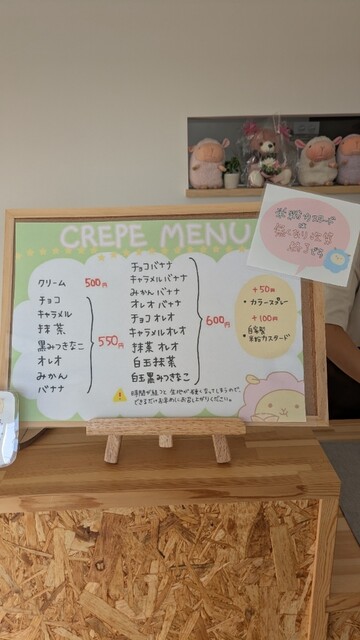 CREPE MENU
クリーム 500円
チョコ
キャラメル
抹茶
黒みつきなこ
オレオ
みかん
バナナ
550円
チョコバナナ
キャラメルバナナ
みかんバナナ
オレオバナナ
チョコオレオ
キャラメルオレオ
抹茶オレオ
白玉抹茶
白玉黒みつきなこ
600円
+50円
・カラースプレー
+100円
自家製
・米粉カスタード
米粉カスタード
は
無くなり次第
終了です
時間が経つと生地が硬くなってしまうので、
できるだけお早めにお召し上がりください。